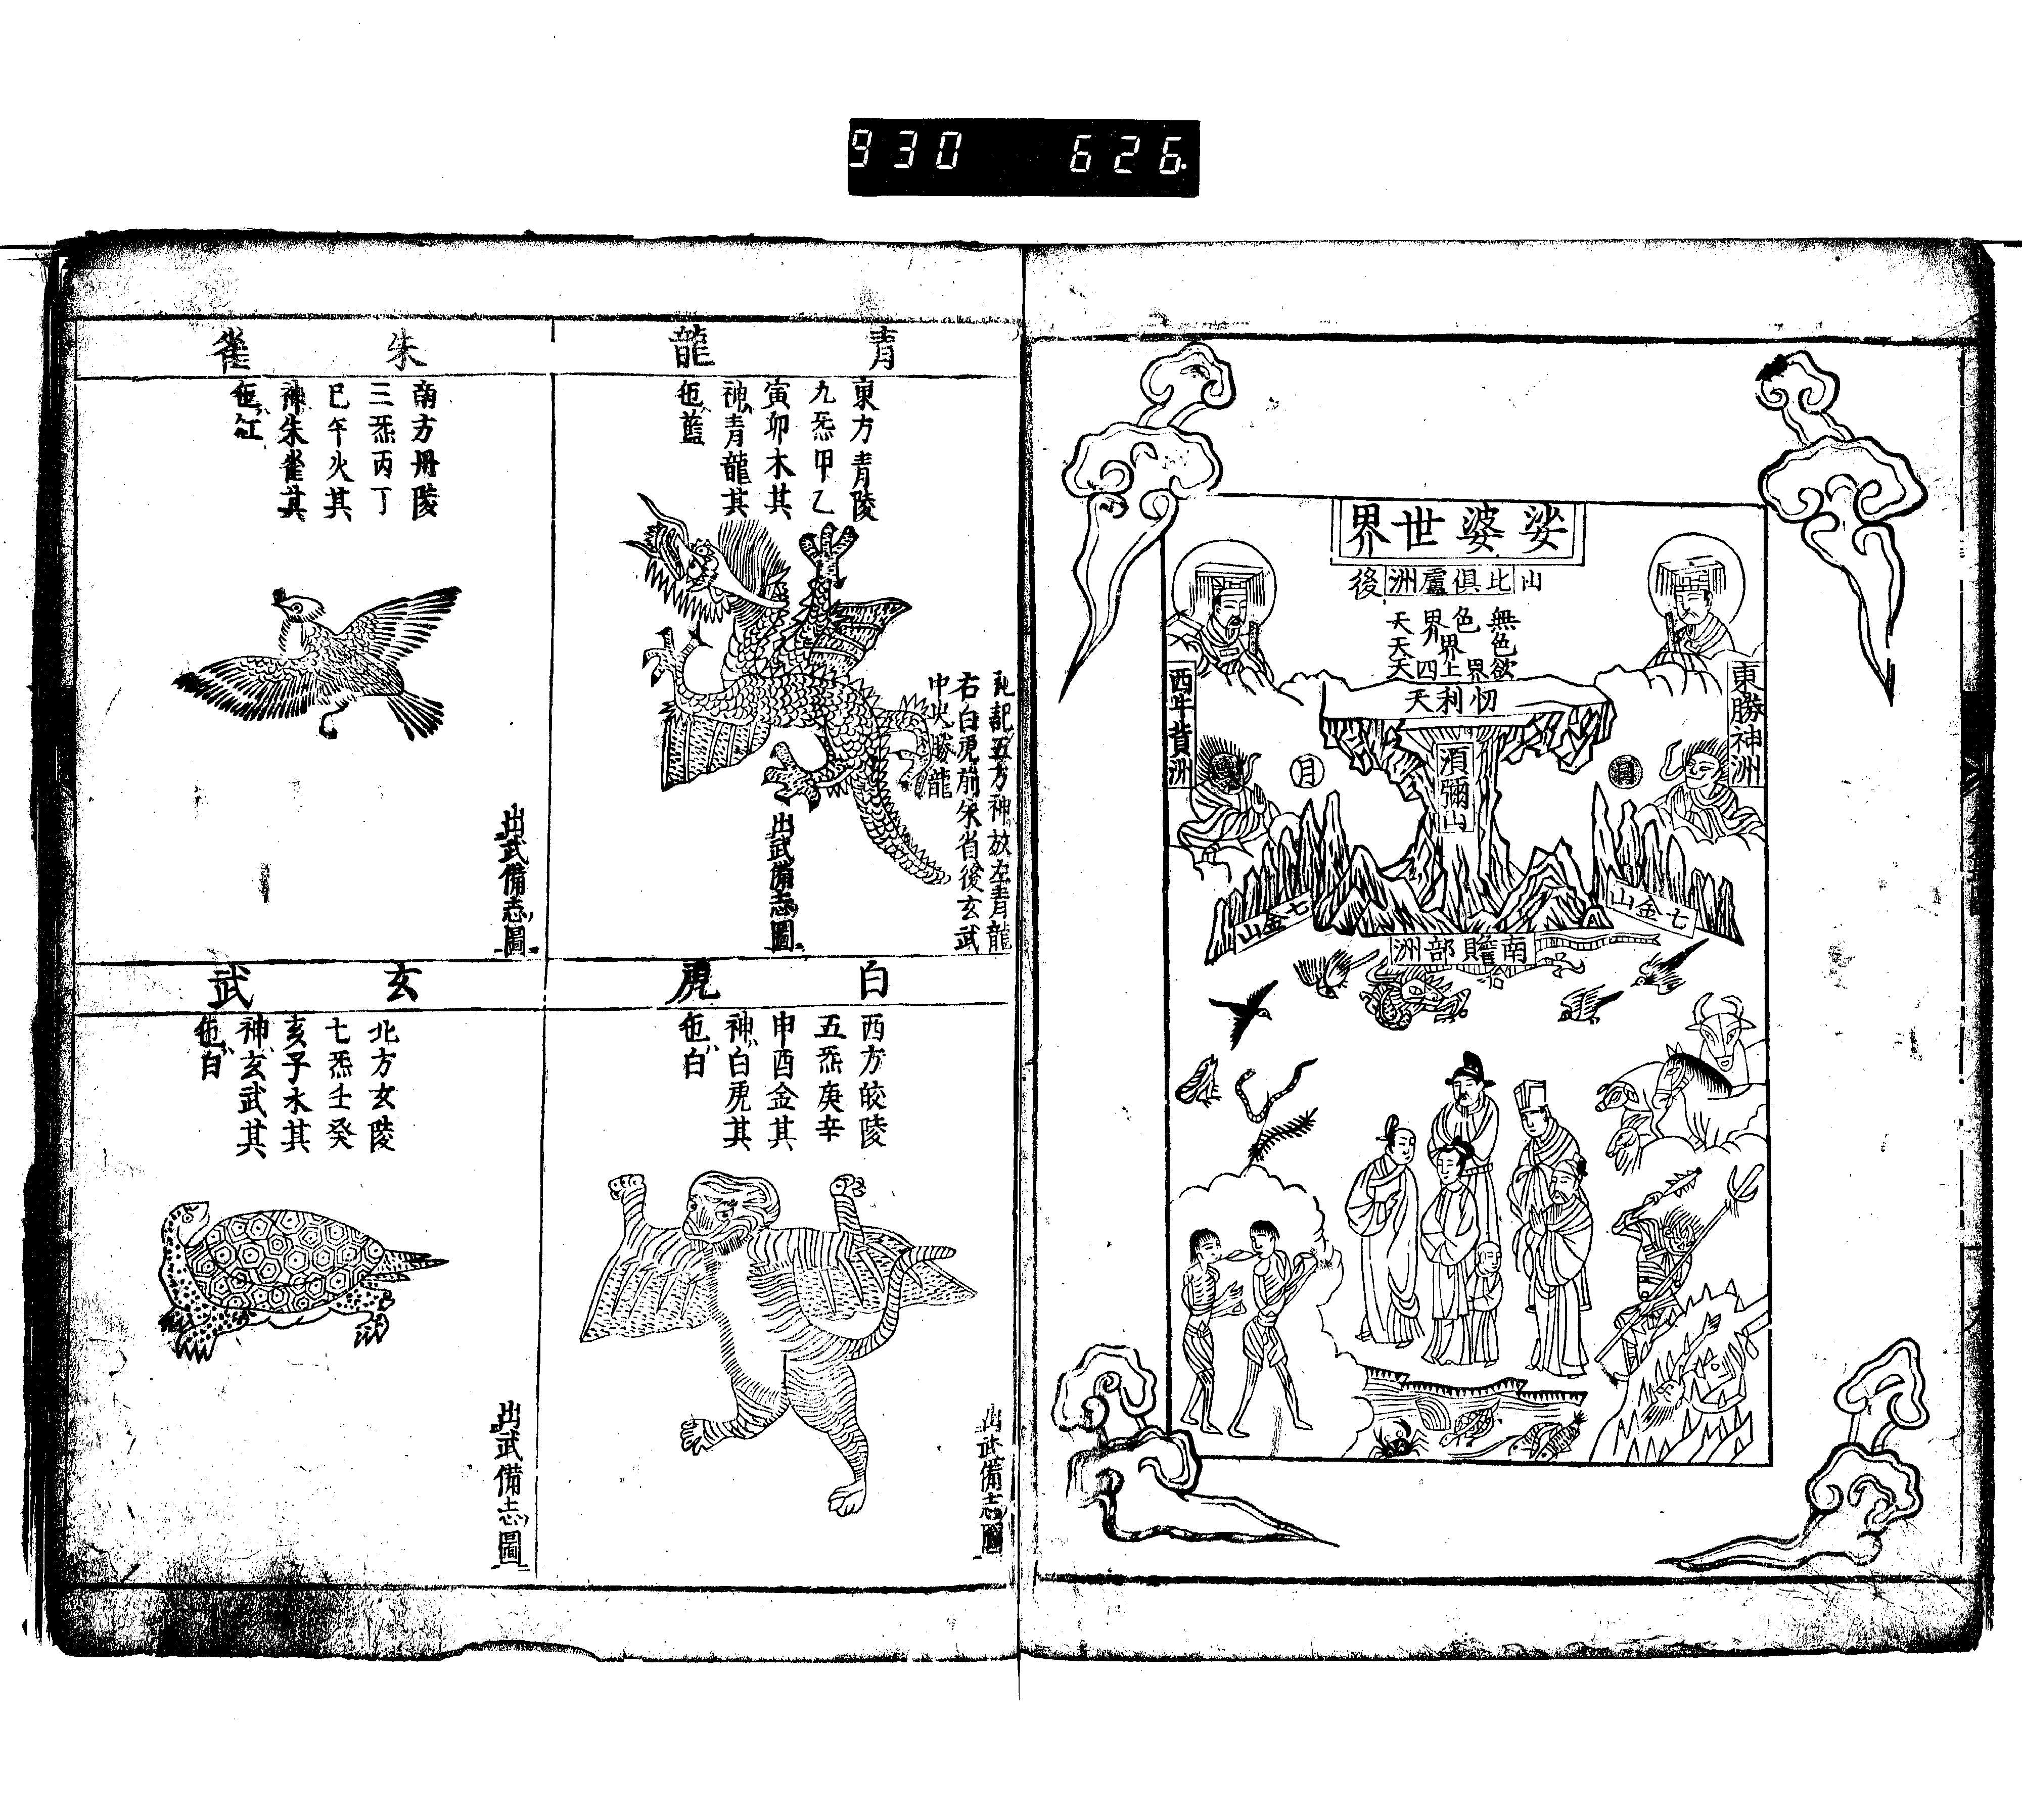 930 626
娑婆世界
山北俱盧洲後
無色界天
色界天
欲界上四天
忉利天
須彌山
東勝神洲
西牛貨洲
日
月
七金山
七金山
南贍部洲
青龍
東方青陵
九炁甲乙
寅卯木其
神青龍其
色藍
礼記五方神放左青龍
右白虎前朱雀後玄武
中央勝龍
出武備志圖
朱雀
南方丹陵
三炁丙丁
巳午火其
神朱雀其
色红
出武備志圖
白虎
西方皎陵
五炁庚辛
申酉金其
神白虎其
色白
出武備志圖
玄武
北方玄陵
七炁壬癸
亥子水其
神玄武其
色白
出武備志圖